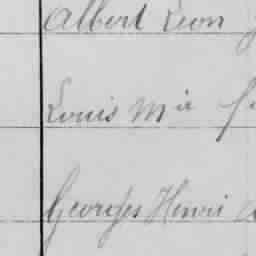 Albert Leon
Louis M ie
Georges Henri